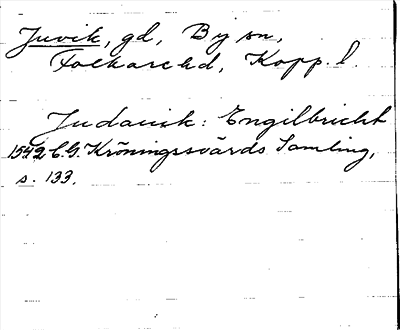 Juvik, gd, By sn,
Folkare hd, Kopp. l.
Judauik: Engilbricht
1542 C.G. Kröningssvärds Samling,
s. 133.